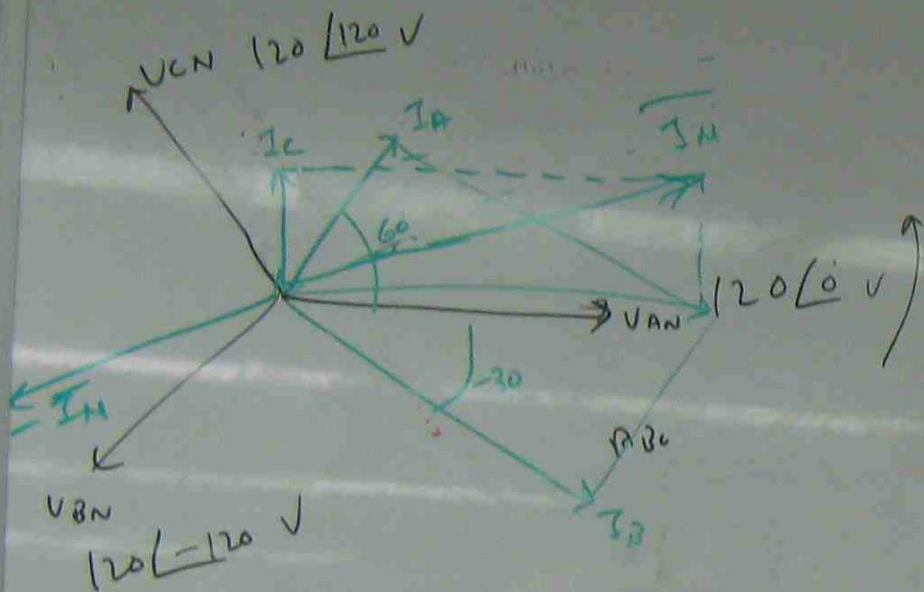 VCN 120 ∠120 V
IC
IA
IN
60
VAN
120∠0 V
-30
IN
ABC
VBN
120∠-120 V
IB